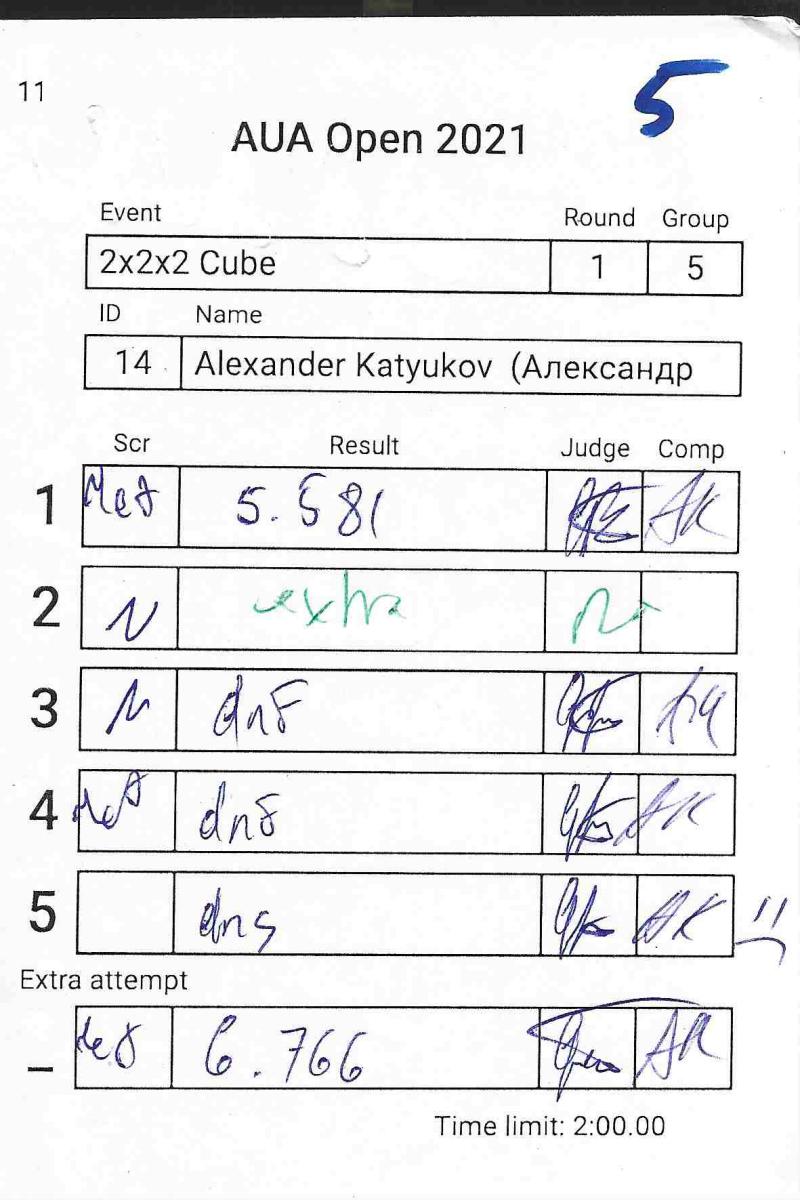 11
5
AUA Open 2021
Event Round Group
2x2x2 Cube 1 5
ID Name
14 Alexander Katyukov (Александр
Scr Result Judge Comp
1 5.581 AK
2 N extra
3 N dnf
4 dnf AK
5 dns AK
Extra attempt
_ 6.766 AK
Time limit: 2:00.00